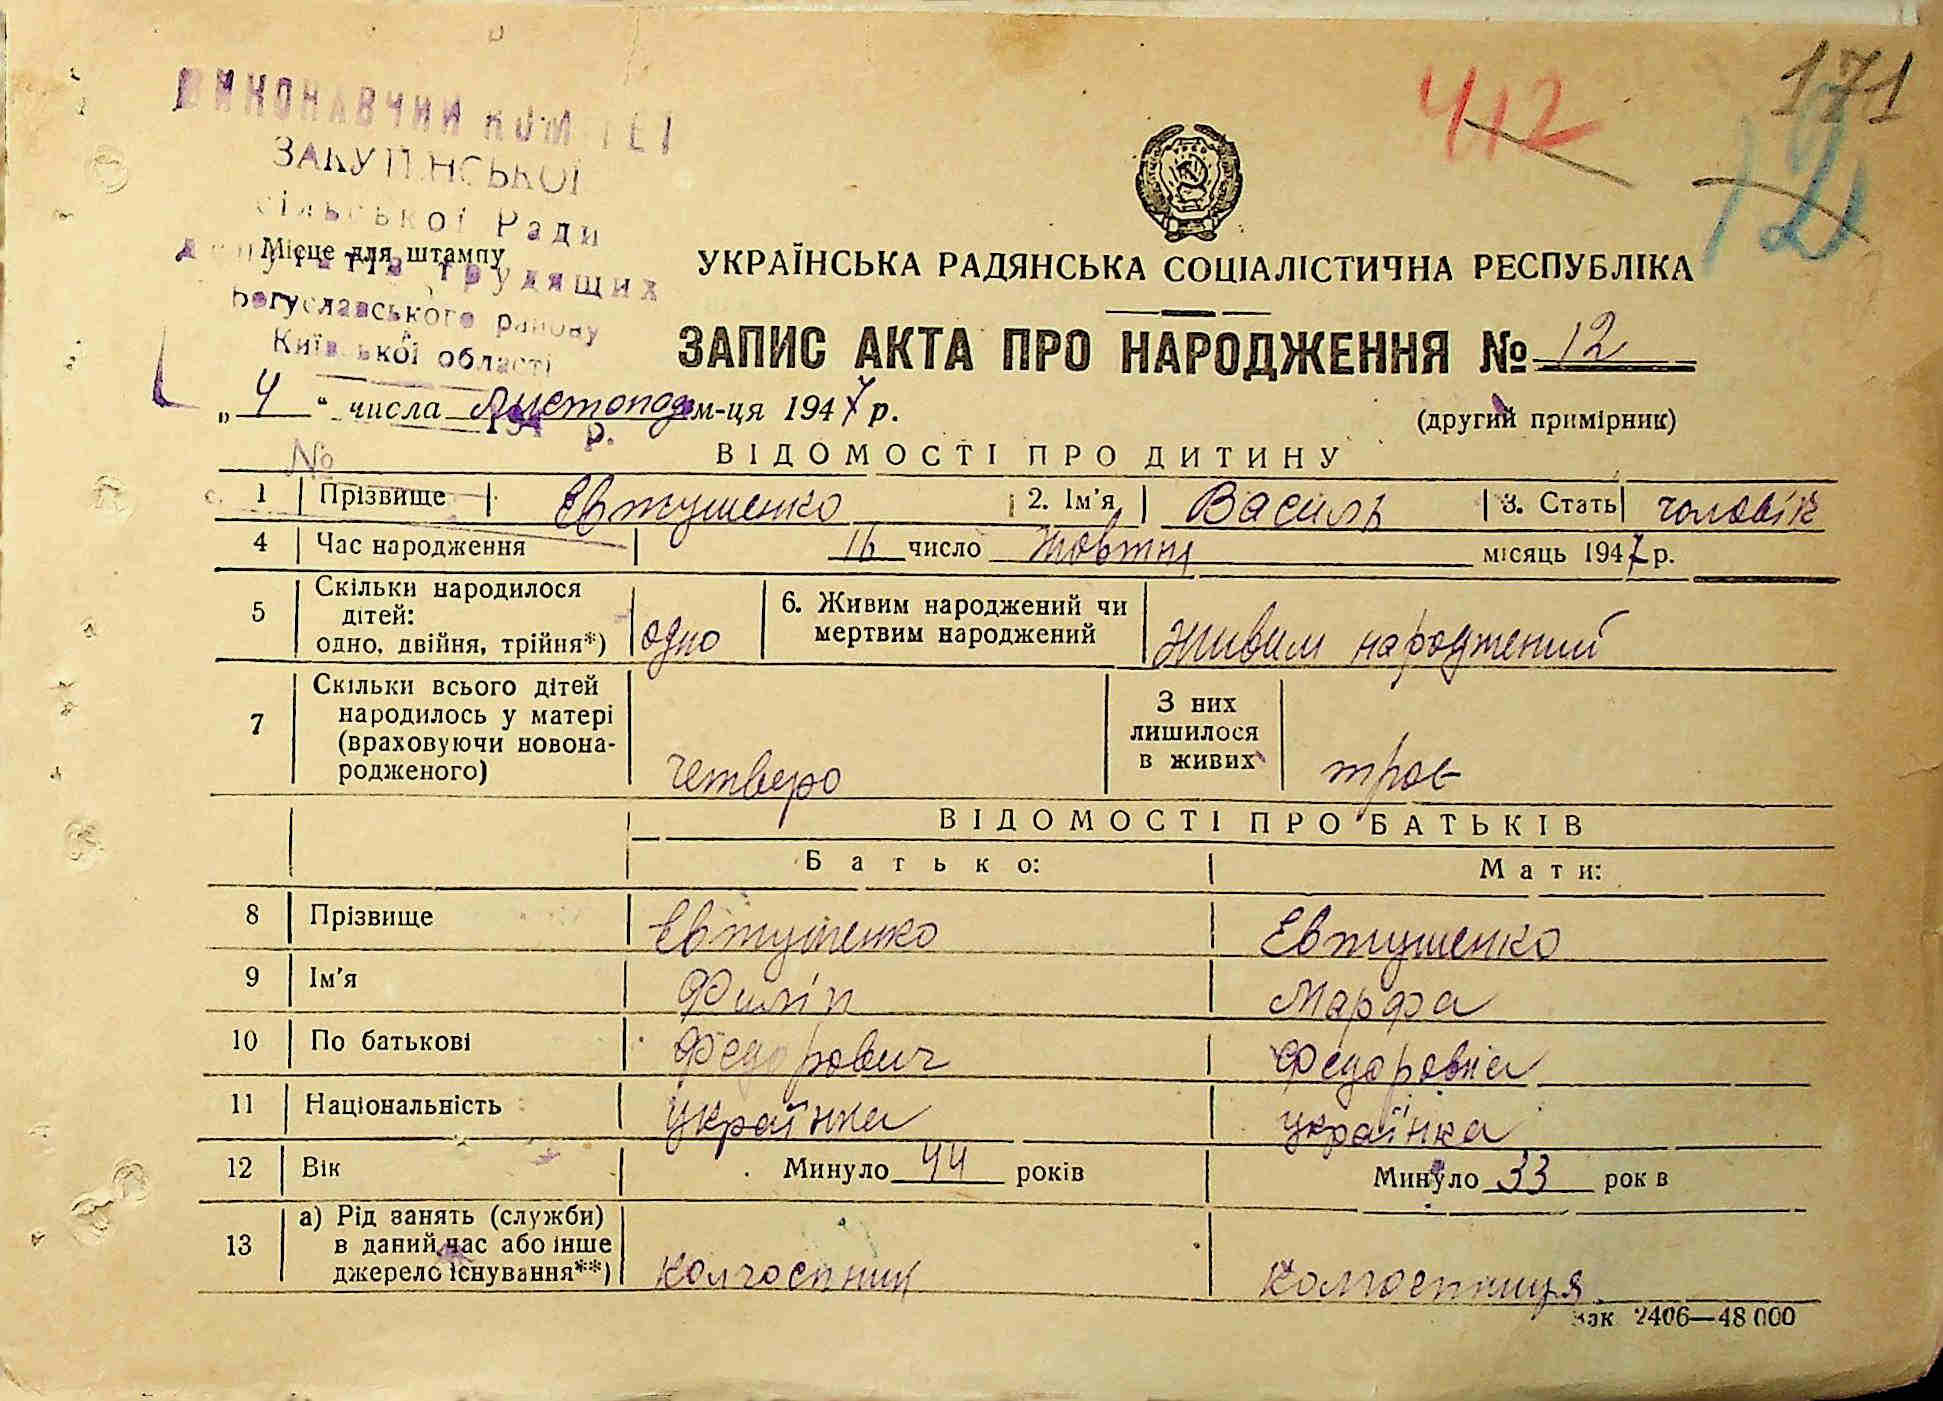 171
412
12
ВИКОНАВЧИЙ КОМІТЕТ
ЗАКУТИНСЬКОЇ
сільської Ради
депутатів трудящих
Богуславського району
Київської області
194 р.
№
Місце для штампу
УКРАЇНСЬКА РАДЯНСЬКА СОЦІАЛІСТИЧНА РЕСПУБЛІКА
ЗАПИС АКТА ПРО НАРОДЖЕННЯ № 12
„ 4 “ числа листопод м-ця 1947 р.
(другий примірник)
ВІДОМОСТІ ПРО ДИТИНУ
1 Прізвище Евтушенко 2. Ім'я Василь 3. Стать чоловік
4 Час народження 16 число жовтня місяць 1947 р.
5 Скільки народилося дітей: одно, двійня, трійня*) одно 6. Живим народжений чи мертвим народжений Живим народжений
7 Скільки всього дітей народилось у матері (враховуючи новонародженого) четверо З них лишилося в живих троє
ВІДОМОСТІ ПРО БАТЬКІВ
Батько: Мати:
8 Прізвище Евтушенко Евтушенко
9 Ім'я Филіп Марфа
10 По батькові Федорович Федоровна
11 Національність українка українка
12 Вік Минуло 44 років Минуло 33 рок в
13 а) Рід занять (служби) в даний час або інше джерело існування**) колгоспник колгоспниця
Зак 2406—48 000